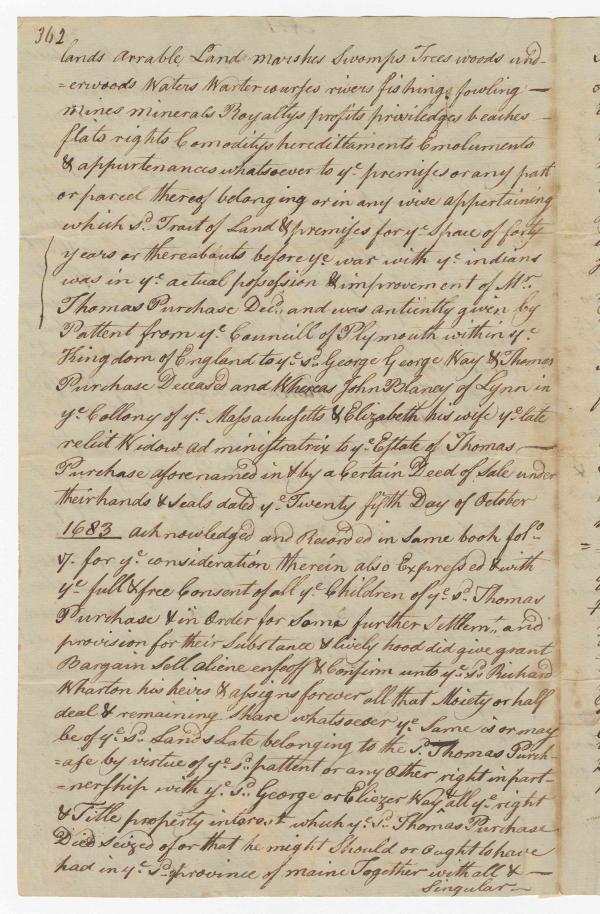 362
lands arrable Land marshes Swomps Trees woods und-
=erwoods Waters Warter courses rivers fishing fowling —
mines minerals Royaltys profits priviledges beaches —
flats rights Comoditys heredittaments Emoluments
& appurtenances whatsoever to ye. premises or any part
or parcel thereof belonging or in any wise appertaining
which sd. Tract of Land & premises for ye. Space of forty
years or thereabouts before ye war with ye. indians
was in ye. actual possession & improvement of Mr.
Thomas Purchase Decd. and was antiently given by
Pattent from ye. Councill of Plymouth within ye.
Kingdom of England to ye. sd. George George Way & Thomas
Purchase Deceased and Whereas John Blaney of Lynn in
ye. Collony of ye. Massachusetts & Elizabeth his wife ye. late
relict Widow administratrix to ye. Estate of Thomas —
Purchase aforenamed in & by a Certain Deed of Sale under
their hands & Seals dated ye. Twenty fifth Day of October
1683 acknowledged and Recorded in Same book folo.
7. for ye. consideration therein also Expressed & with
ye. full & free Consent of all ye. Children of ye. sd. Thomas
Purchase & in Order for Some further Settlemt. and
provision for their Substance & lively hood did give grant
Bargain Sell aliene enfeoff & Confirm unto ye. sd. Richard
Wharton his heirs & assigns forever all that Moiety or half
deal & remaining Share whatsoever ye. Same is or may
be of ye. sd. Lands Late belonging to the sd. Thomas Purch-
=ase by virtue of ye. sd. pattent or any Other right in part-
=nership with ye. sd. George or Eliezer Way & all ye. right
& Title property interest which ye. sd. Thomas Purchase
Died seized of or that he might Should or ought to have
had in ye. sd. province of maine Together with all & —
Singular —